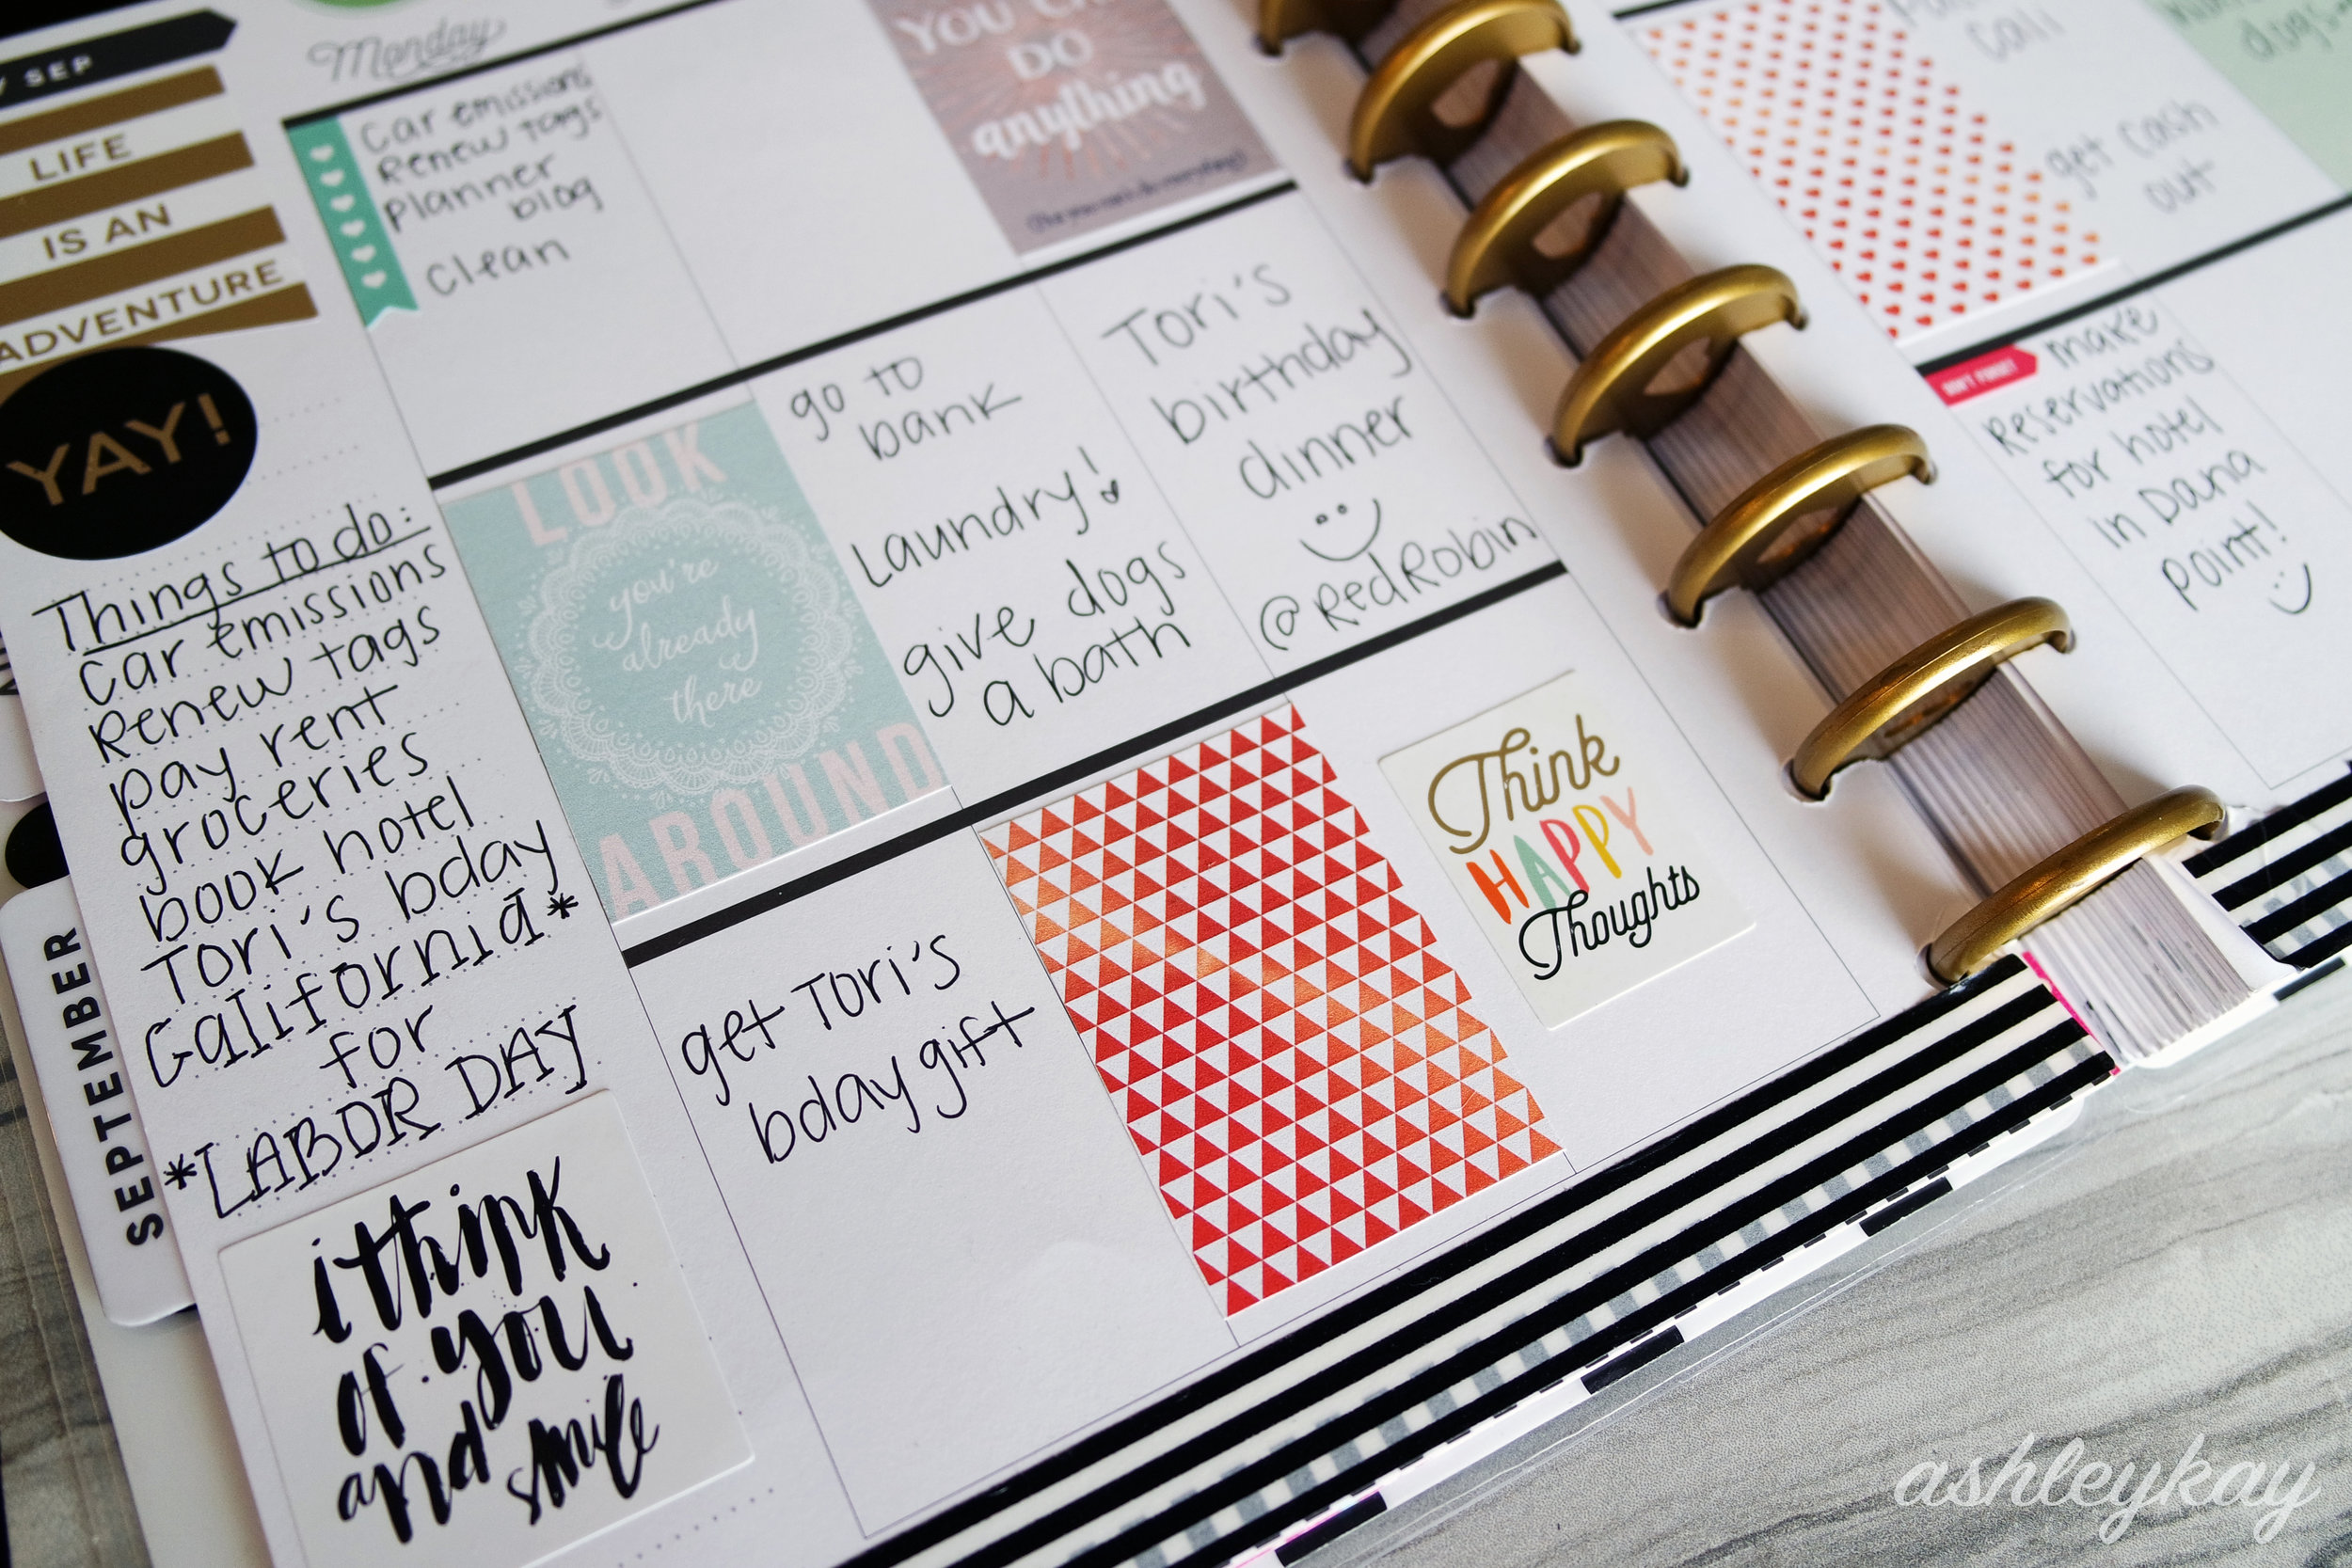 SEP
LIFE
IS AN
ADVENTURE
YAY!
Things to do:
car emissions
Renew tags
pay rent
groceries
book hotel
Tori's bday
California*
for
*LABOR DAY
i think
of you
and
smile
SEPTEMBER
Monday
car emissions
Renew tags
planner
blog
clean
YOU
DO
anything
LOOK
you're
already
there
AROUND
go to
bank
Laundry!
give dogs
a bath
Tori's
birthday
dinner
@RedRobin
get Tori's
bday gift
Think
HAPPY
Thoughts
Cali
get cash
out
dogs
DON'T FORGET
make
Reservations
for hotel
in Dana
point!
ashleykay